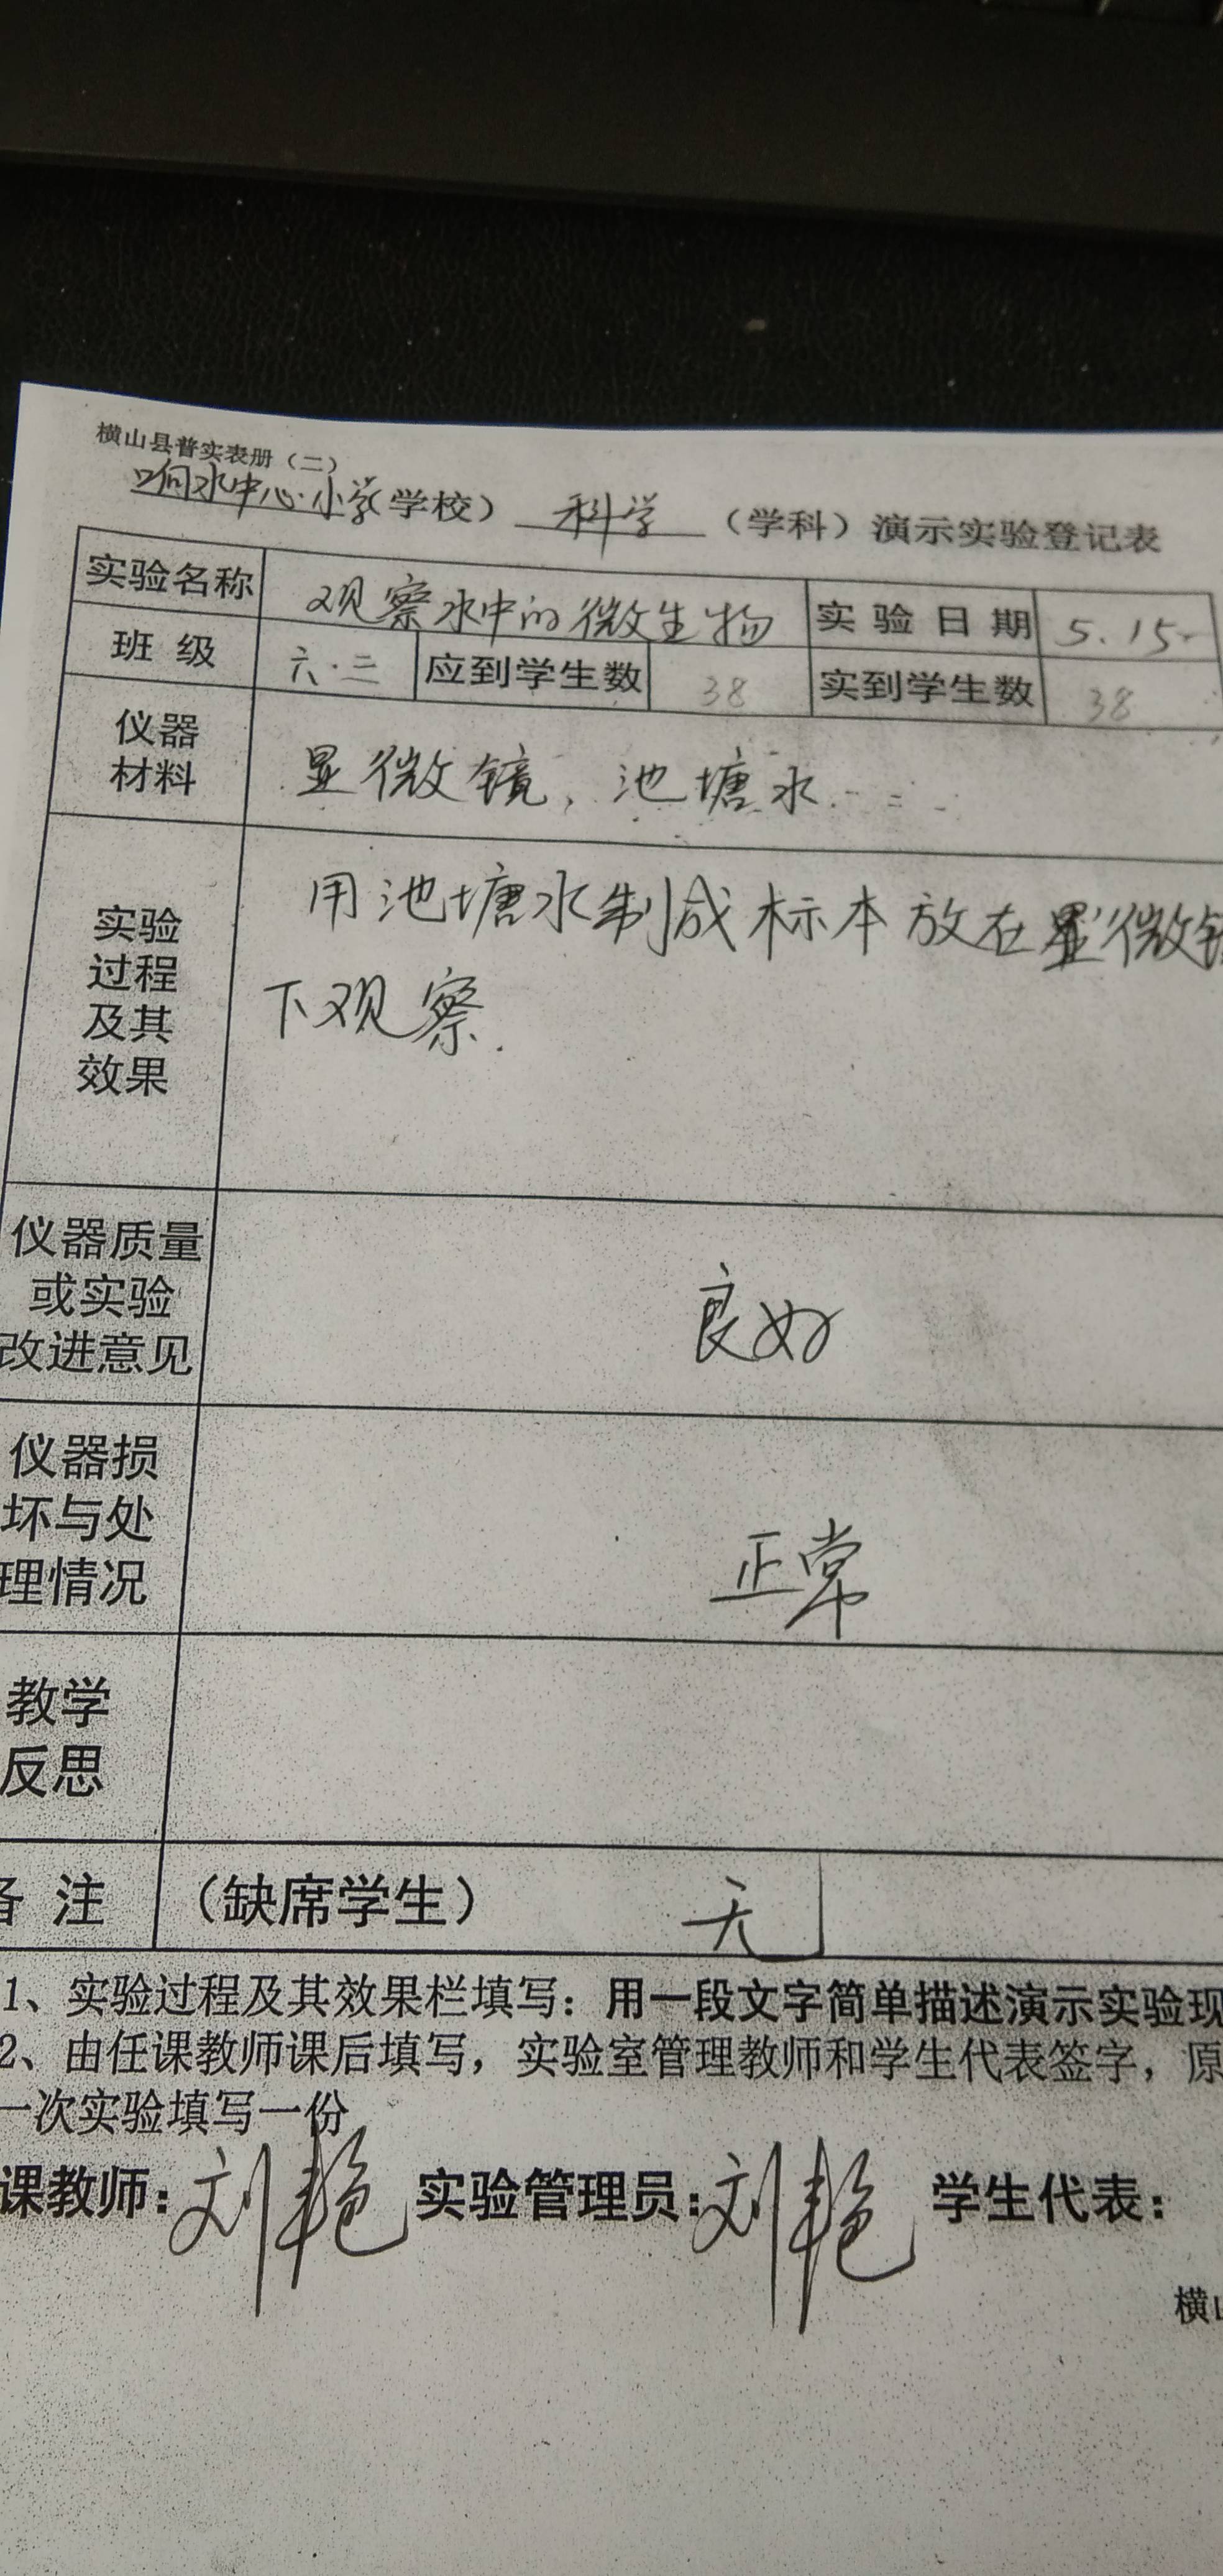 横山县普实表册（二）
响水中心小学（学校） 科学 （学科）演示实验登记表
实验名称 观察水中的微生物 实验日期 5.15
班级 六.二 应到学生数 38 实到学生数 38
仪器
材料
显微镜，池塘水.
实验
过程
及其
效果
用池塘水制成标本放在显微镜
下观察.
仪器质量
或实验
改进意见
良好
仪器损
坏与处
理情况
正常
教学
反思
备注 （缺席学生） 无
1、实验过程及其效果栏填写：用一段文字简单描述演示实验现
2、由任课教师课后填写，实验室管理教师和学生代表签字，原
一次实验填写一份
课教师：刘艳 实验管理员：刘艳 学生代表：
横山